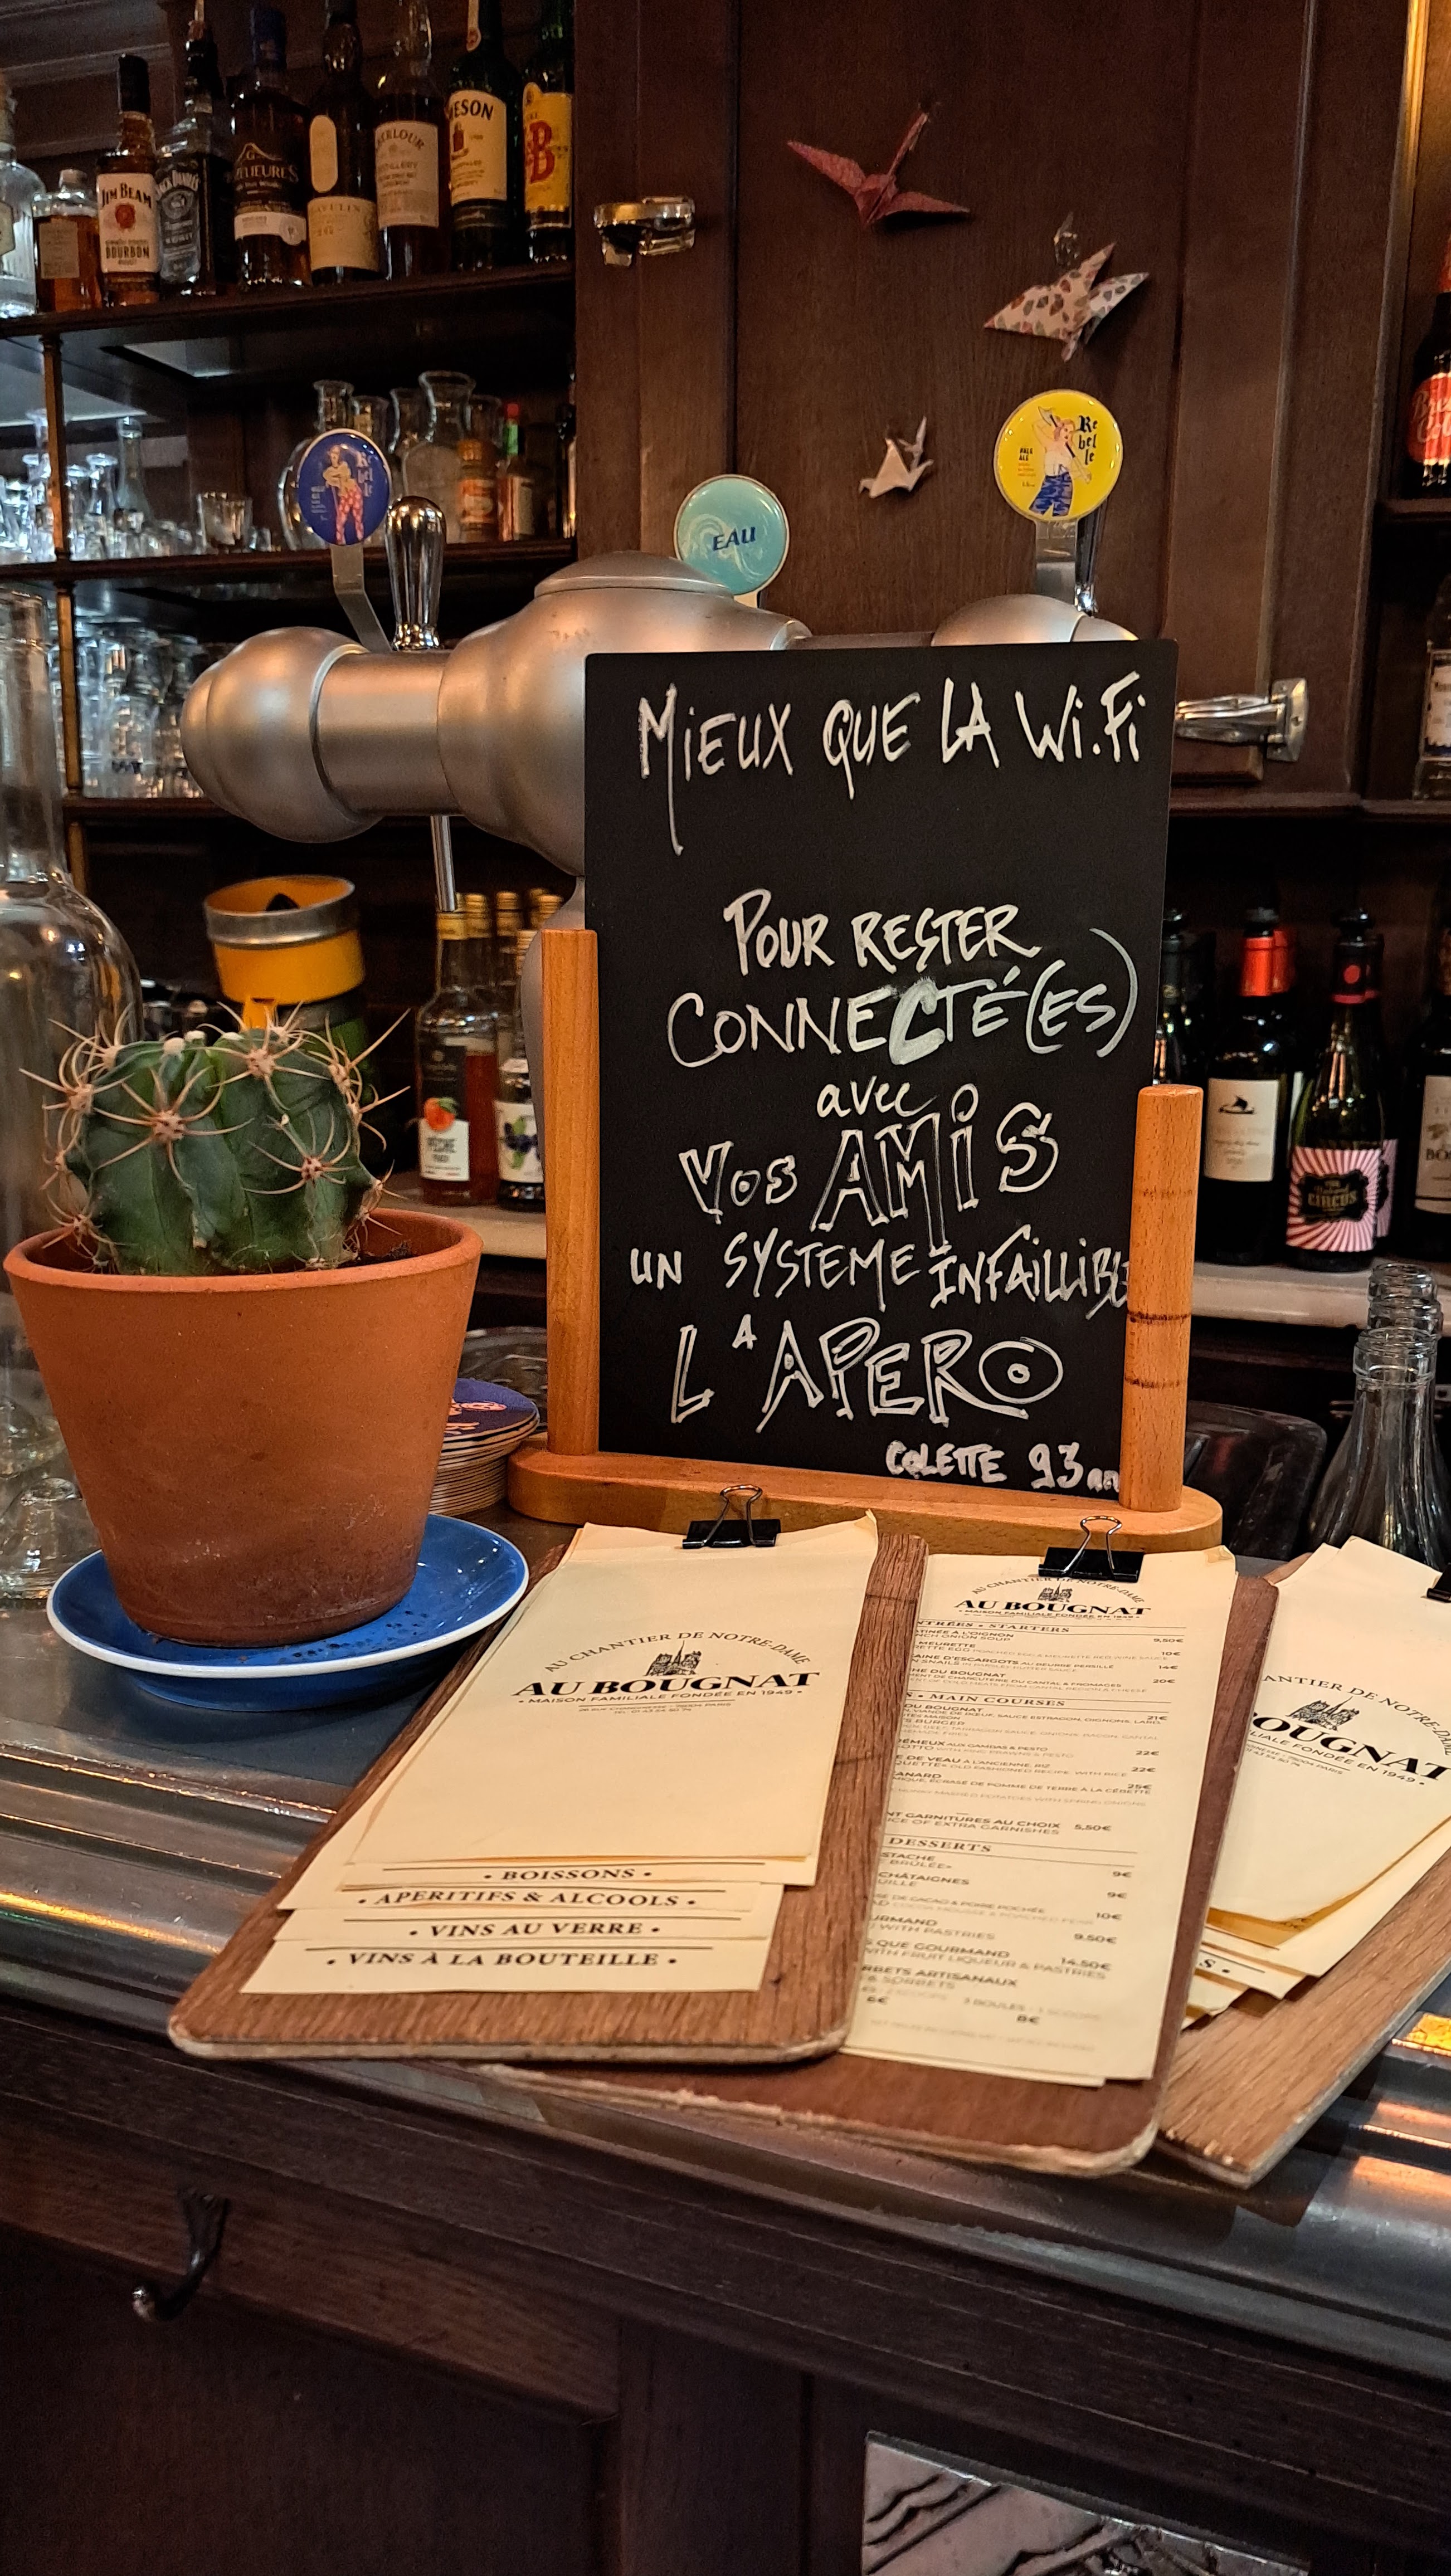 JIM BEAM
BOURBON
JACK DANIEL'S
MESON
B
Re
bel
le
Re
bel
le
PALE
ALE
EAU
MiEUX QUE LA Wi.Fi
POUR RESTER
CONNECTÉ(ES)
avec
VOS AMIS
UN SYSTEME INFAILLIBLE
L'APERO
COLETTE 93 an
PÊCHE
CIRCUS
AU CHANTIER DE NOTRE-DAME
AU BOUGNAT
• MAISON FAMILIALE FONDÉE EN 1949 •
• BOISSONS •
• APERITIFS & ALCOOLS •
• VINS AU VERRE •
• VINS À LA BOUTEILLE •
AU CHANTIER DE NOTRE-DAME
AU BOUGNAT
• MAISON FAMILIALE FONDÉE EN 1949 •
NTRÉES • STARTERS
ATINÉE À L'OIGNON
NCH ONION SOUP 9,50€
MEURETTE 10€
AINE D'ESCARGOTS AU BEURRE PERSILLÉ 14€
HE DU BOUGNAT 20€
S • MAIN COURSES
DU BOUGNAT 21€
S BURGER
22€
E DE VEAU À L'ANCIENNE, RIZ 22€
ANARD 25€
NT GARNITURES AU CHOIX 5,50€
ICE OF EXTRA GARNISHES
DESSERTS
STACHE 9€
BRÛLÉE»
CHÂTAIGNES 9€
10€
URMAND 9,50€
WITH PASTRIES
S QUE GOURMAND 14,50€
WITH FRUIT LIQUEUR & PASTRIES
RBETS ARTISANAUX
& SORBETS
6€ 8€
ANTIER DE NOTRE-DAME
BOUGNAT
ILIALE FONDÉE EN 1949 •
S •